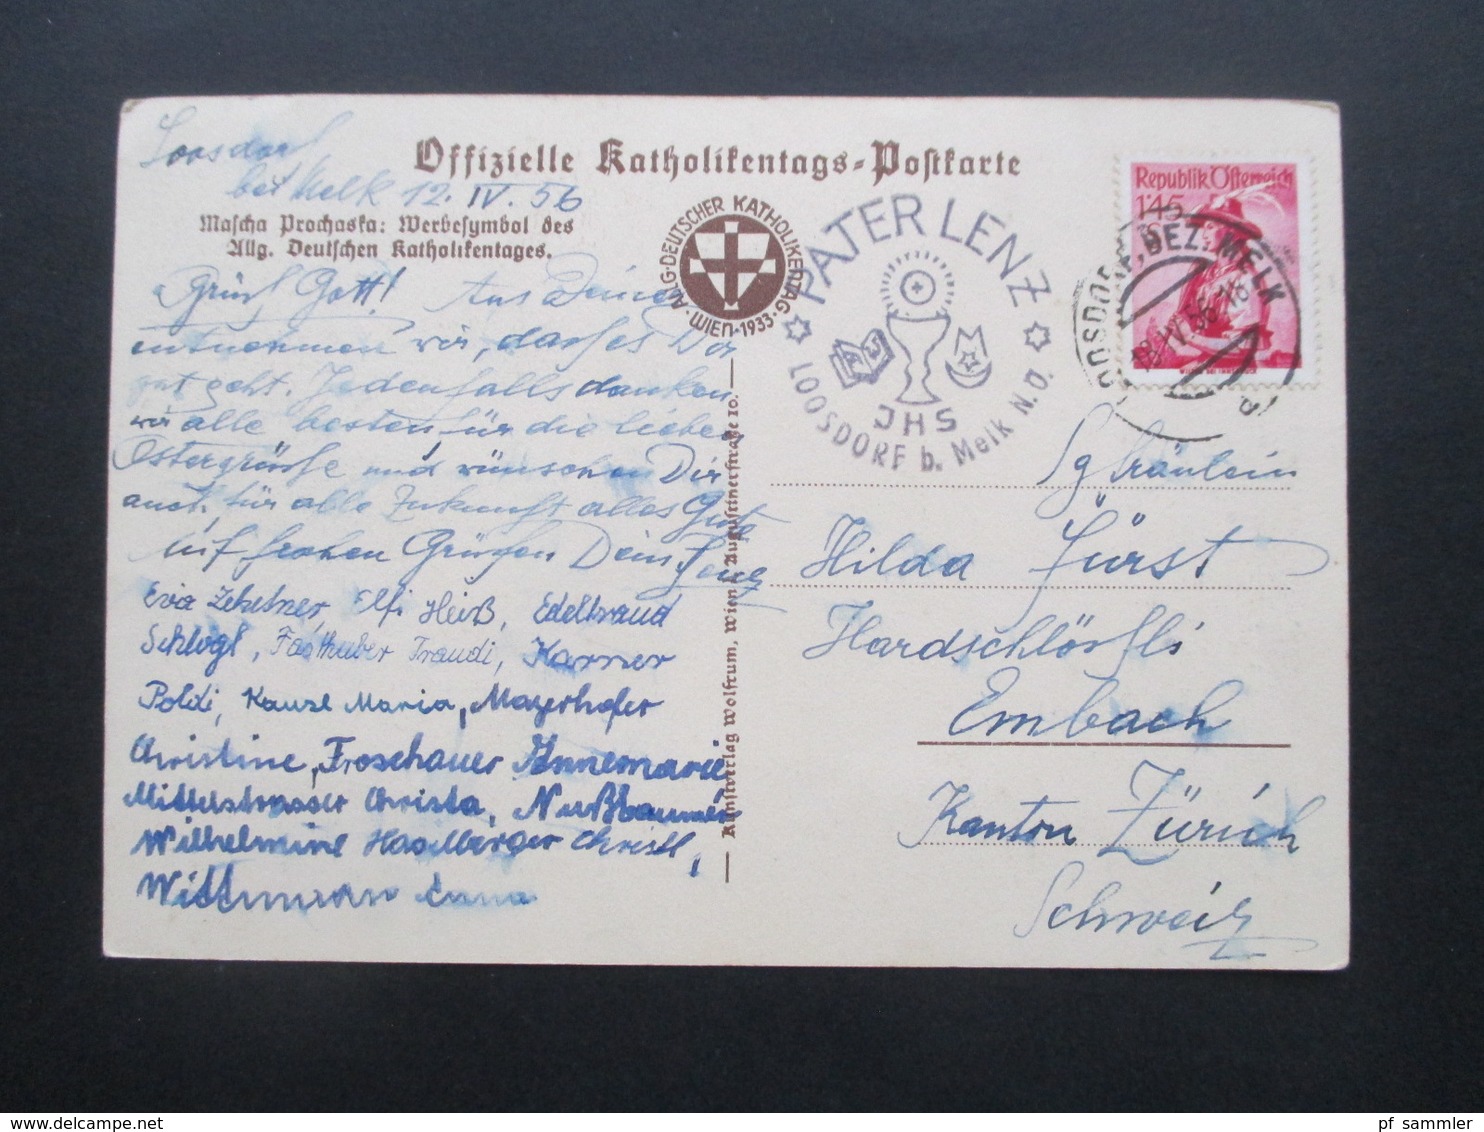 Loosdorf
bei Melk 12. IV. 56
Offizielle Katholikentags-Postkarte
Mascha Prochaska: Werbesymbol des
Allg. Deutschen Katholikentages.
ALLG. DEUTSCHER KATHOLIKENTAG
WIEN 1933
PATER LENZ
JHS
LOOSDORF b. Melk N.Ö.
Republik Österreich
1'45
LOOSDORF, BEZ. MELK
Grüß Gott! Aus Deinen
entnehmen wir, dass es Dir
gut geht. Jedenfalls danken
wir alle bestens für die lieben
Ostergrüsse und wünschen Dir
auch für alle Zukunft alles Gute
Mit frohen Grüßen Dein
Eva Zehetner, Elfi Heiß, Edeltraud
Schlögl, Fasthuber Traudi, Karner
Poldi, Kanzl Maria, Mayerhofer
Christine, Froschauer Annemarie
Mittelstrasser Christa, Nußbaumer
Wilhelmine Haselberger Christl,
Wittmann
Kunstverlag Wolfrum, Wien I. Augustinerstraße 10.
Sg Fräulein
Hilda Fürst
Embach
Kanton Zürich
Schweiz
pf sammler